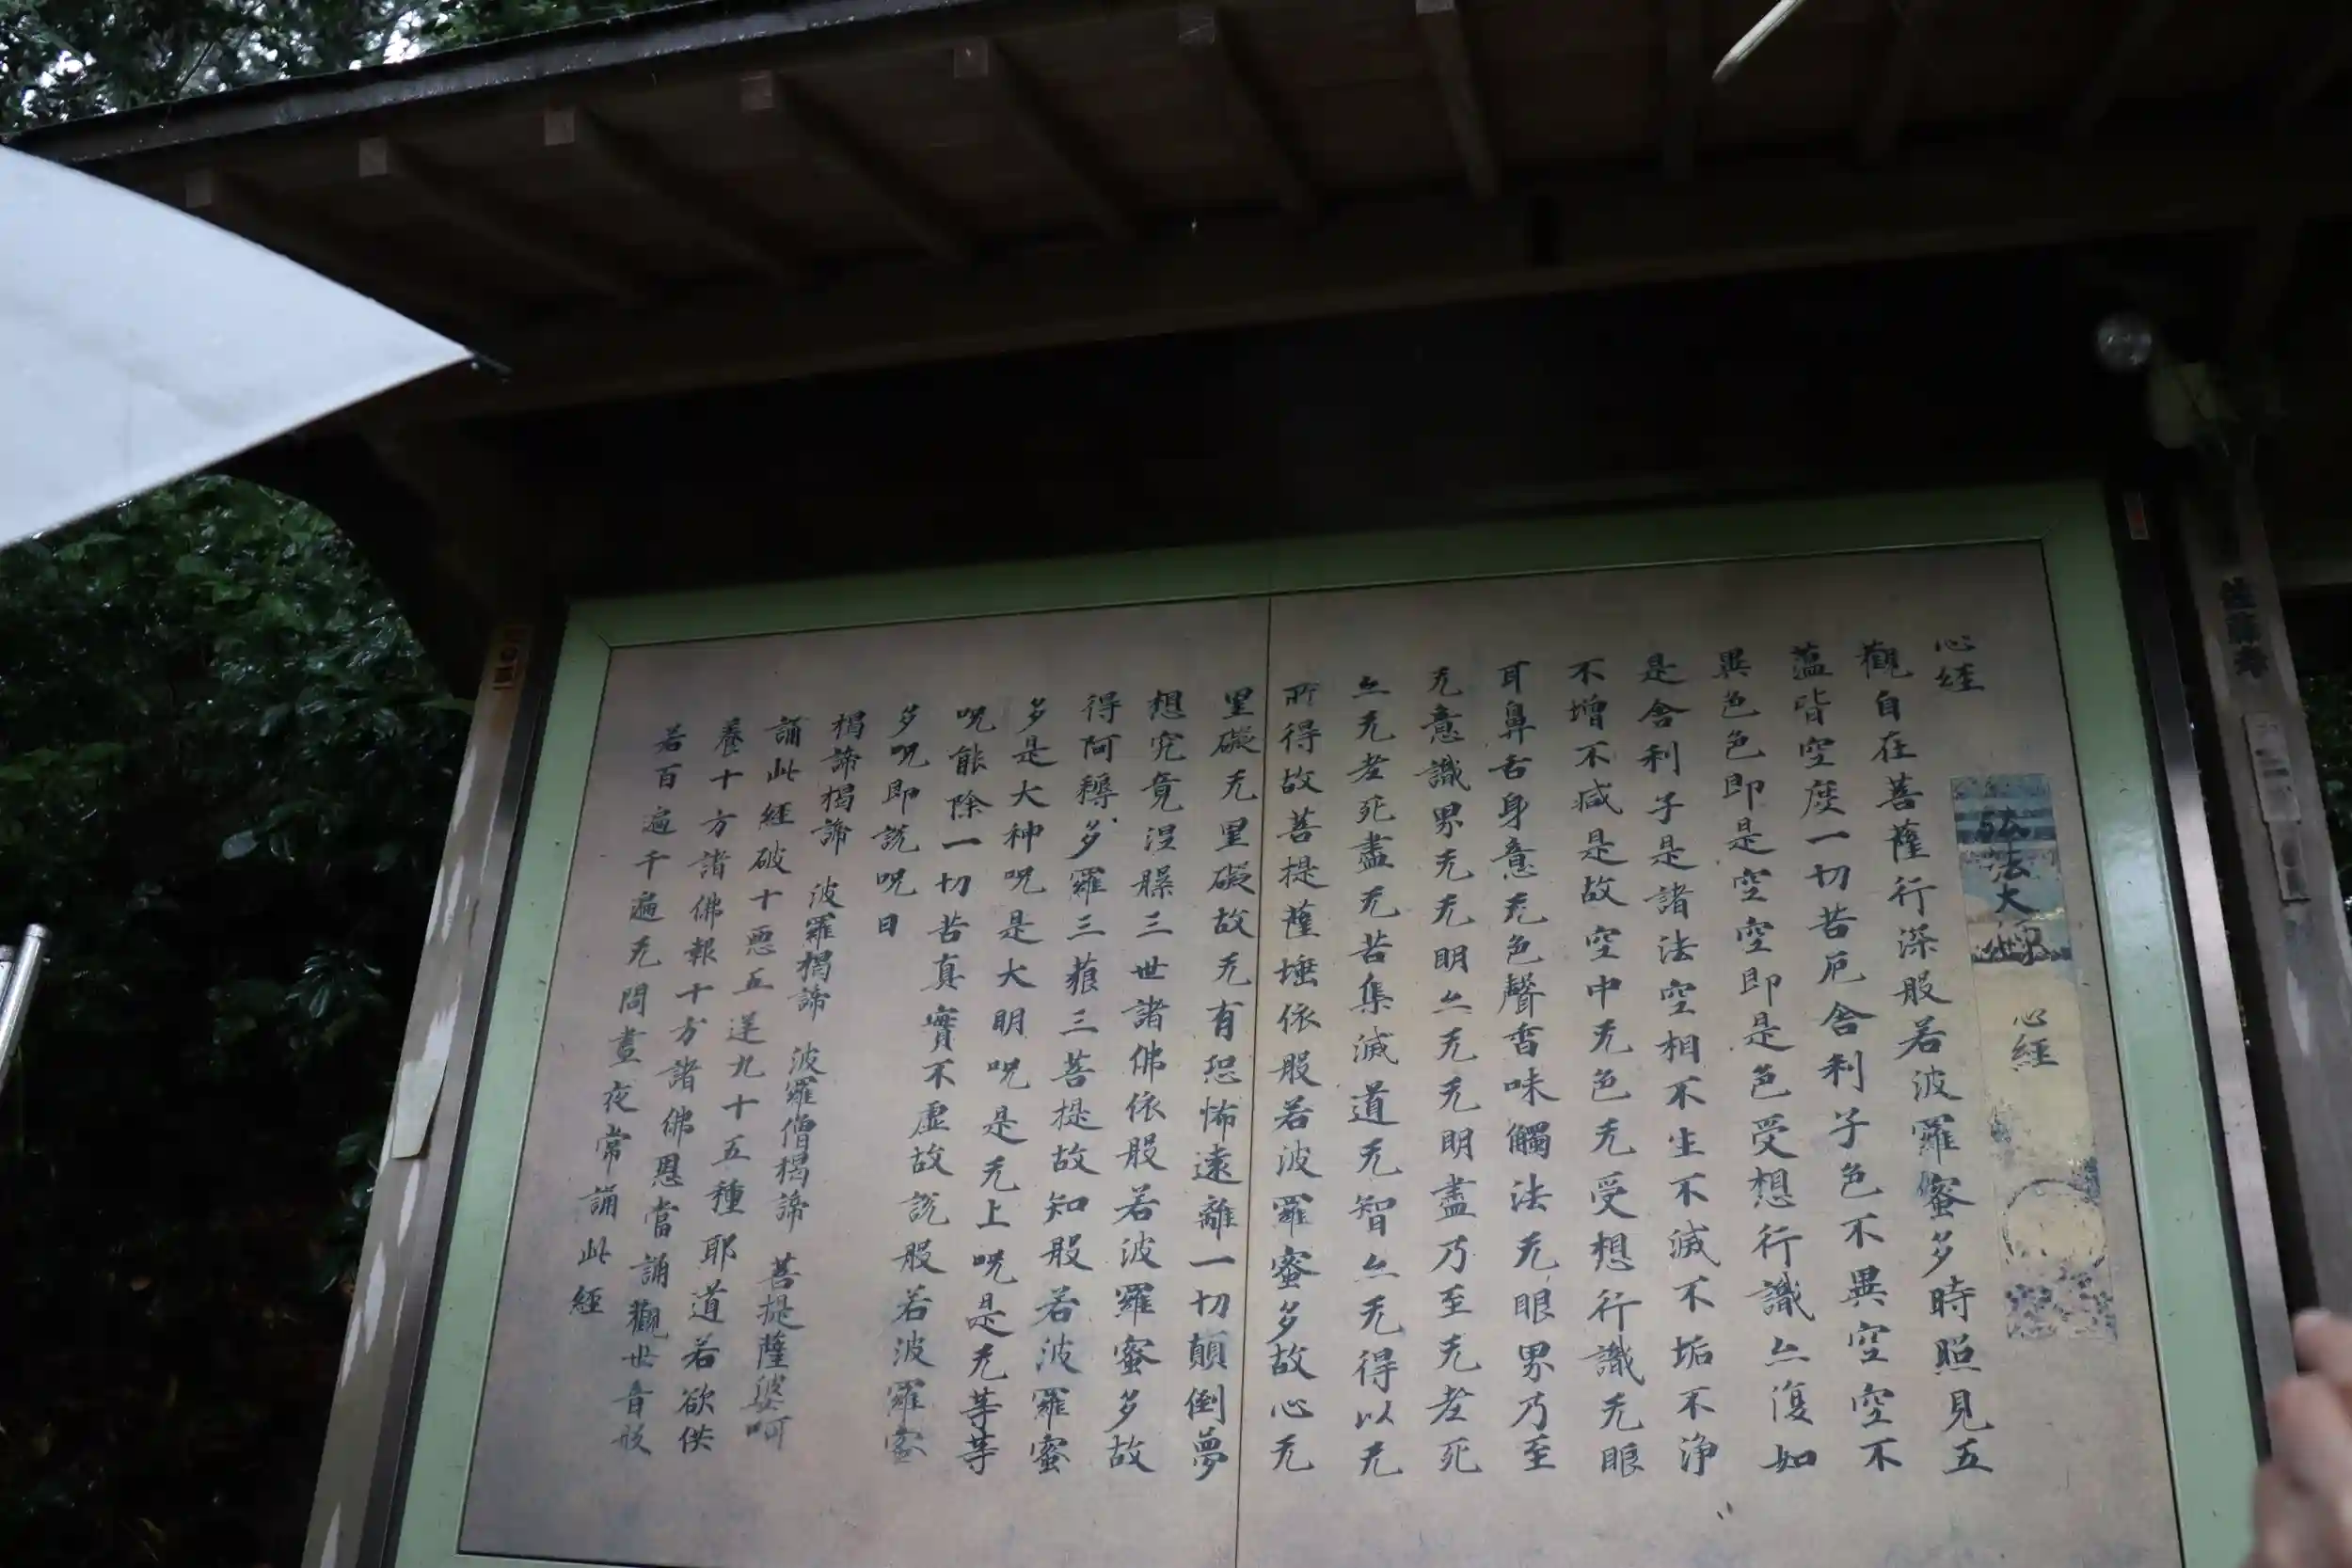 弘法大師 心經
心経
觀自在菩薩行深般若波羅蜜多時照見五
蘊皆空度一切苦厄舍利子色不異空空不
異色色即是空空即是色受想行識亦復如
是舍利子是諸法空相不生不滅不垢不浄
不增不減是故空中无色无受想行識无眼
耳鼻舌身意无色聲香味觸法无眼界乃至
无意識界无无明亦无无明盡乃至无老死
亦无老死盡无苦集滅道无智亦无得以无
所得故菩提薩埵依般若波羅蜜多故心无
罣礙无罣礙故无有恐怖遠離一切顛倒夢
想究竟涅槃三世諸佛依般若波羅蜜多故
得阿耨多羅三藐三菩提故知般若波羅蜜
多是大神呪是大明呪是无上呪是无等等
呪能除一切苦真實不虛故說般若波羅蜜
多呪即說呪曰
揭諦揭諦 波羅揭諦 波羅僧揭諦 菩提薩婆呵
誦此經破十惡五逆九十五種耶道若欲供
養十方諸佛報十方諸佛恩當誦觀世音般
若百遍千遍无問晝夜常誦此經